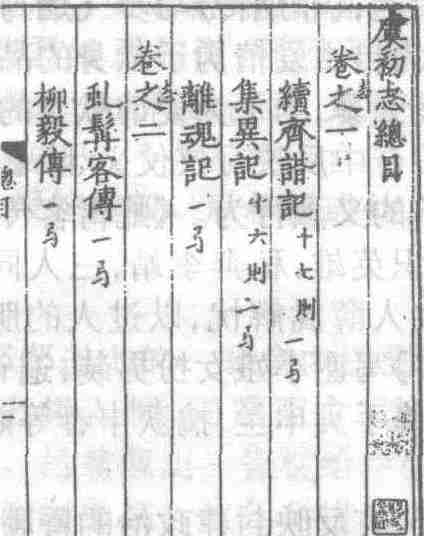 虞初志總目
卷之一
續齊諧記 十七則 一弓
集異記 十六則 二弓
離魂記 一弓
卷之二
虬髯客傳 一弓
柳毅傳 一弓
總目
一